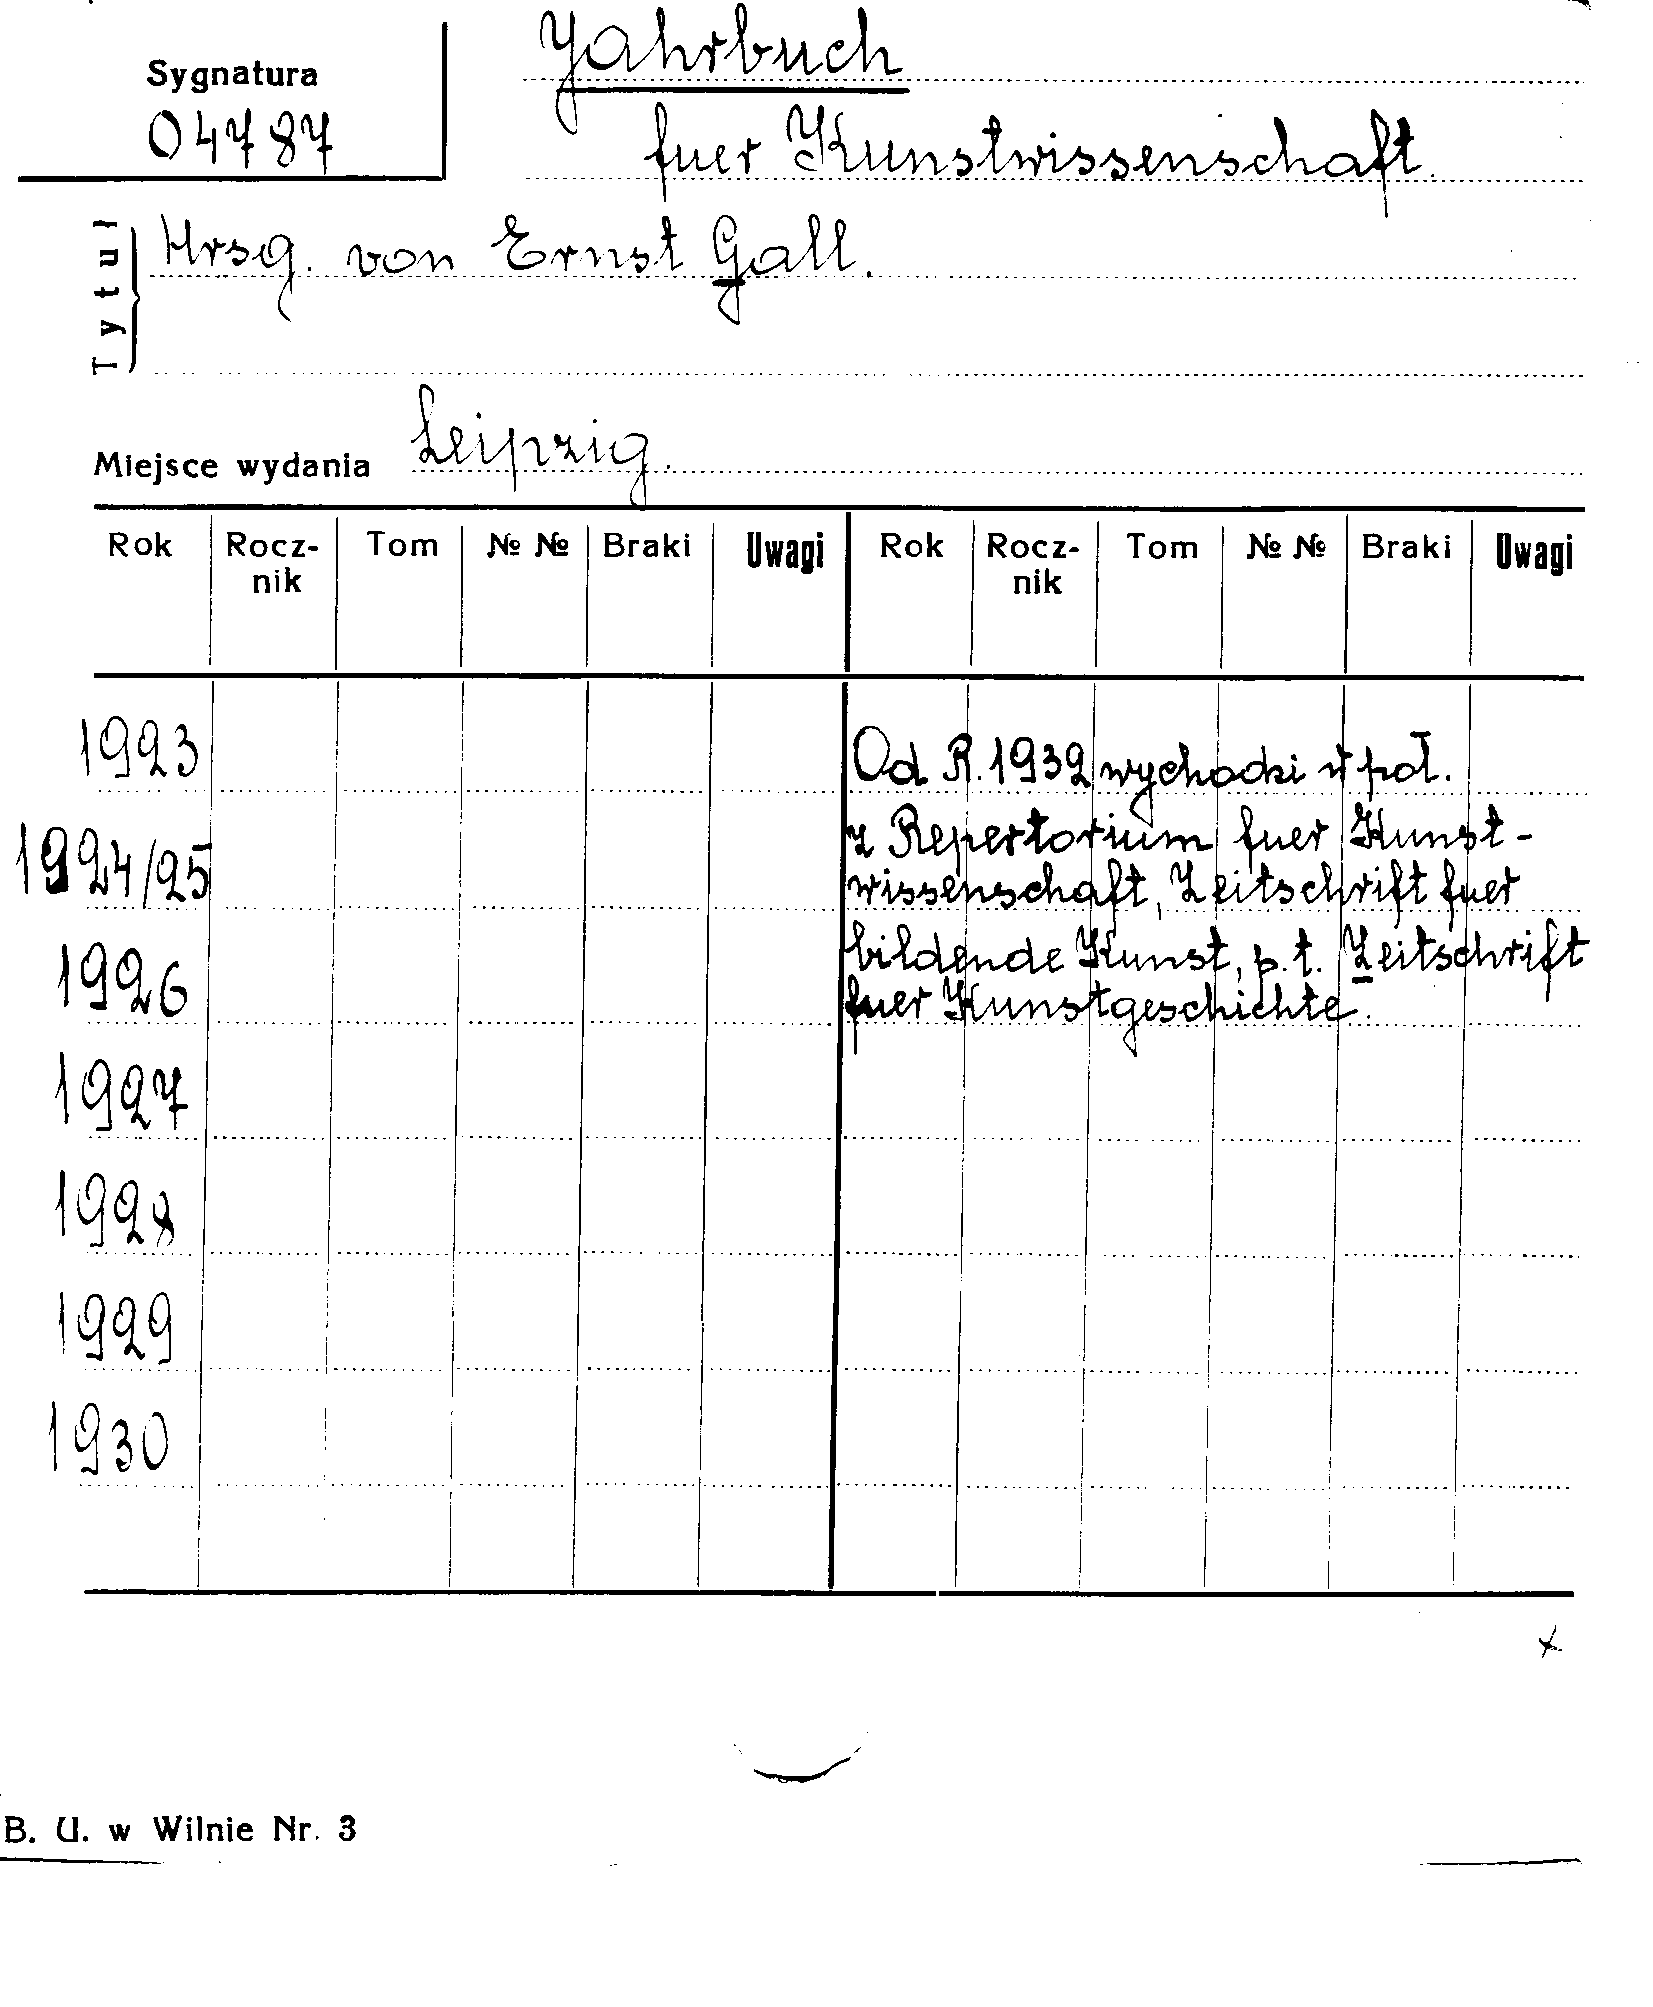 Sygnatura
04787
Jahrbuch
fuer Kunstwissenschaft.
Tytuł
Hrsg. von Ernst Gall.
Miejsce wydania Leipzig.
Rok Rocz-nik Tom № № Braki Uwagi Rok Rocz-nik Tom № № Braki Uwagi
1923
Od R. 1932 wychodzi w poł.
1924/25
z Repertorium fuer Kunst-
wissenschaft, Zeitschrift fuer
1926
bildende Kunst, p.t. Zeitschrift
fuer Kunstgeschichte.
1927
1928
1929
1930
x
B. U. w Wilnie Nr. 3